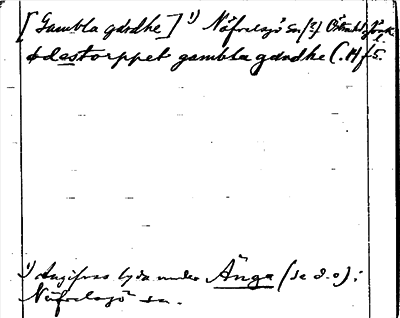 [Gambla gärdhe] 1) Näfvelsjö sn. (?) Östra hd,
Ödestorppet gambla gärdhe (.H) f 5.
1) Angifves lyda under Änga (se d. o) i
Näfvelsjö sn.